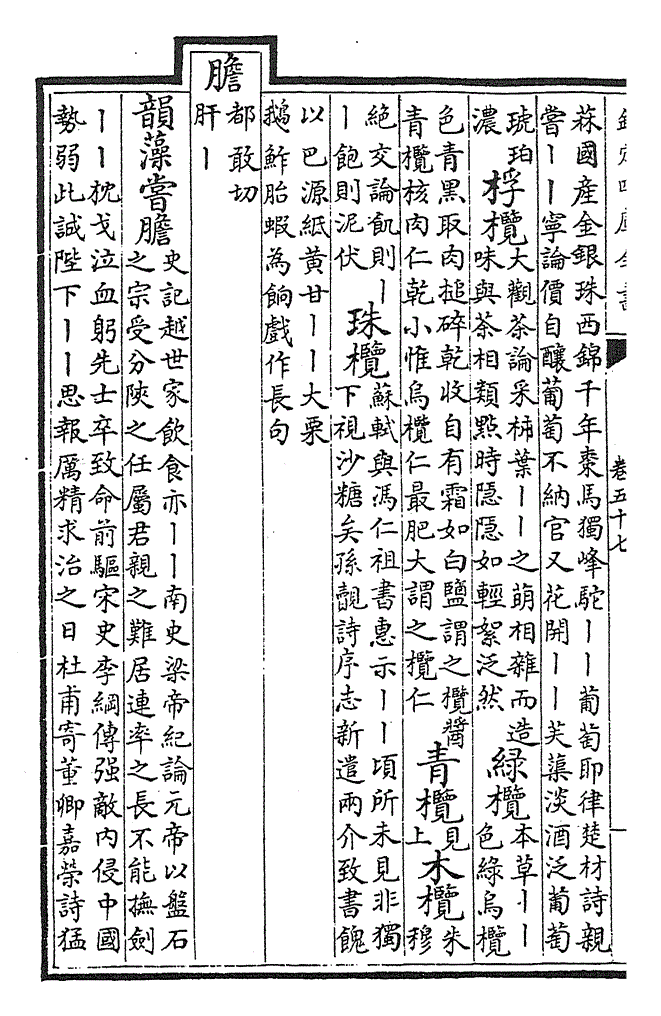 欽定四庫全書
卷五十七
菻國産金銀珠西錦千年棗馬獨峰駝丨丨葡萄耶律楚材詩親
嘗丨丨寧論價自釀葡萄不納官又花開丨丨芙蕖淡酒泛葡萄
琥珀
濃
桴欖
大觀茶論采柿葉丨丨之萌相雜而造
味與茶相類點時隱隱如輕絮泛然
綠欖
本草丨丨
色綠烏欖
色青黑取肉搥碎乾收自有霜如白鹽謂之欖醬
青欖核肉仁乾小惟烏欖仁最肥大謂之欖仁
青欖
見
上
木欖
朱
穆
絶交論飢則丨
丨飽則泥伏
珠欖
蘇軾與馮仁祖書惠示丨丨頃所未見非獨
下視沙糖矣孫覿詩序志新遣兩介致書餽
以巴源紙黄甘丨丨大栗
鵝鮓胎蝦為餉戲作長句
膽
都敢切
肝丨
韻藻嘗膽
史記越世家飲食亦丨丨南史梁帝紀論元帝以盤石
之宗受分陜之任屬君親之難居連率之長不能撫劍
丨丨枕戈泣血躬先士卒致命前驅宋史李綱傳强敵内侵中國
勢弱此誠陛下丨丨思報厲精求治之日杜甫寄董卿嘉榮詩猛